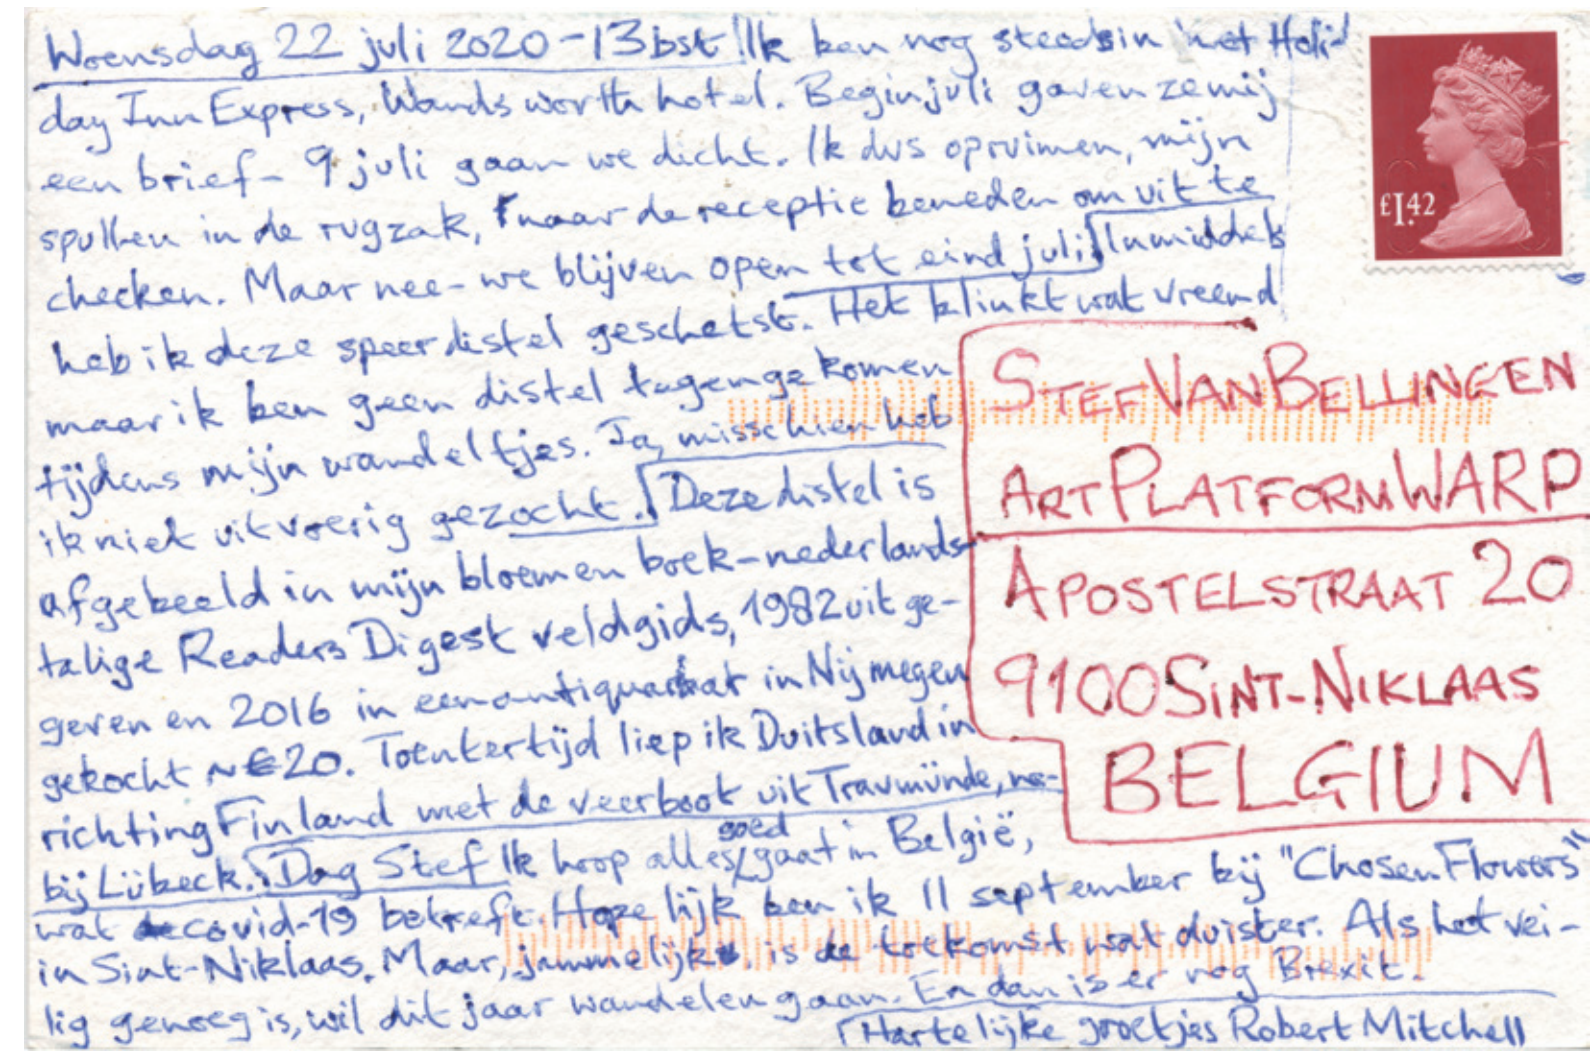 Woensdag 22 juli 2020 - 13 bst Ik ben nog steeds in het Holi-
day Inn Express, Wandsworth hotel. Begin juli gaven ze mij
een brief - 9 juli gaan we dicht. Ik dus opruimen, mijn
spullen in de rugzak, naar de receptie beneden om uit te
checken. Maar nee - we blijven open tot eind juli. Inmiddels
heb ik deze speerdistel geschetst. Het klinkt wat vreemd
maar ik ben geen distel tegengekomen
tijdens mijn wandeltjes. Ja, misschien heb
ik niet uitvoerig gezocht. Deze distel is
afgebeeld in mijn bloemen boek - nederlands-
talige Readers Digest veldgids, 1982 uitge-
geven en 2016 in een antiquariaat in Nijmegen
gekocht ~€20. Toentertijd liep ik Duitsland in
richting Finland met de veerboot uit Travmünde, na-
bij Lübeck. Dag Stef Ik hoop alles goed gaat in België,
wat covid-19 betreft. Hopelijk ben ik 11 september bij "Chosen Flowers"
in Sint-Niklaas. Maar, jammelijk is de toekomst wat duister. Als het vei-
lig genoeg is, wil dit jaar wandelen gaan. En dan is er nog Brexit.
Hartelijke groetjes Robert Mitchell
£1.42
STEF VAN BELLINGEN
ART PLATFORM WARP
APOSTELSTRAAT 20
9100 SINT-NIKLAAS
BELGIUM